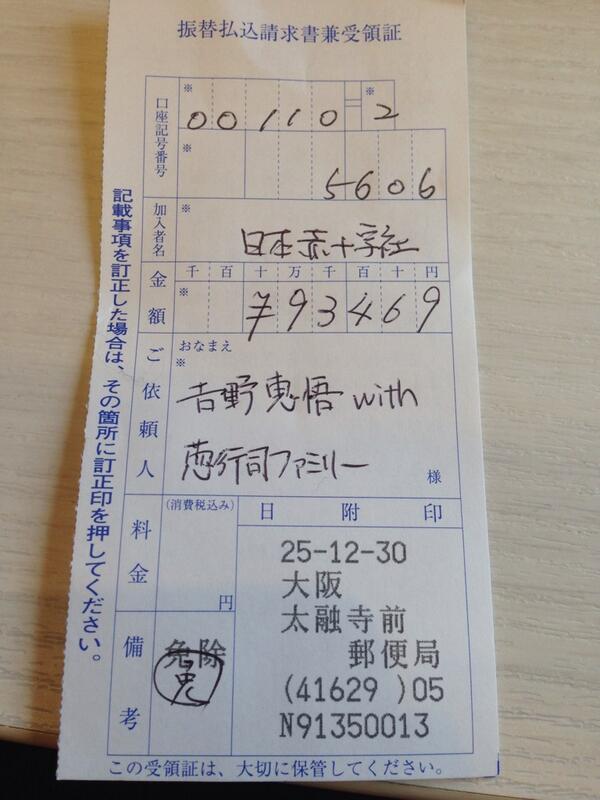 振替払込請求書兼受領証
口座記号番号
※ 00110 = ※ 2
※ 5606
加入者名
※ 日本赤十字社
金額
千 百 十 万 千 百 十 円
※ 793469
ご依頼人
おなまえ
※
吉野恵悟 with
恵行司ファミリー
様
料金
(消費税込み)
円
日附印
25-12-30
大阪
太融寺前
郵便局
(41629 )05
N91350013
備考
免除
この受領証は、大切に保管してください。
記載事項を訂正した場合は、その箇所に訂正印を押してください。